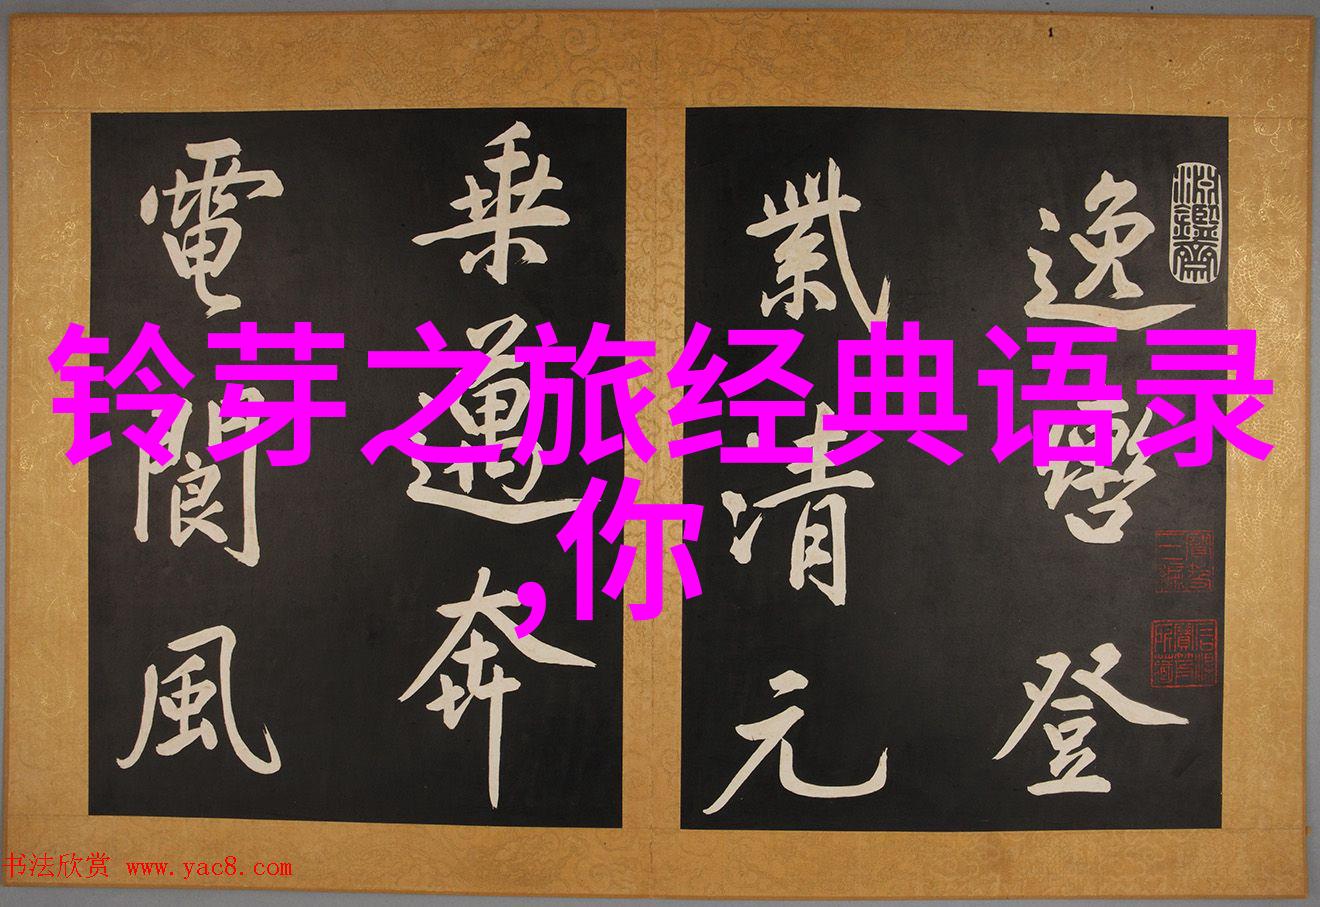 铃芽之旅经典语录
,你
逸轡登
紫清元
乘邁奔
電閬風
书法欣赏 www.yac8.com